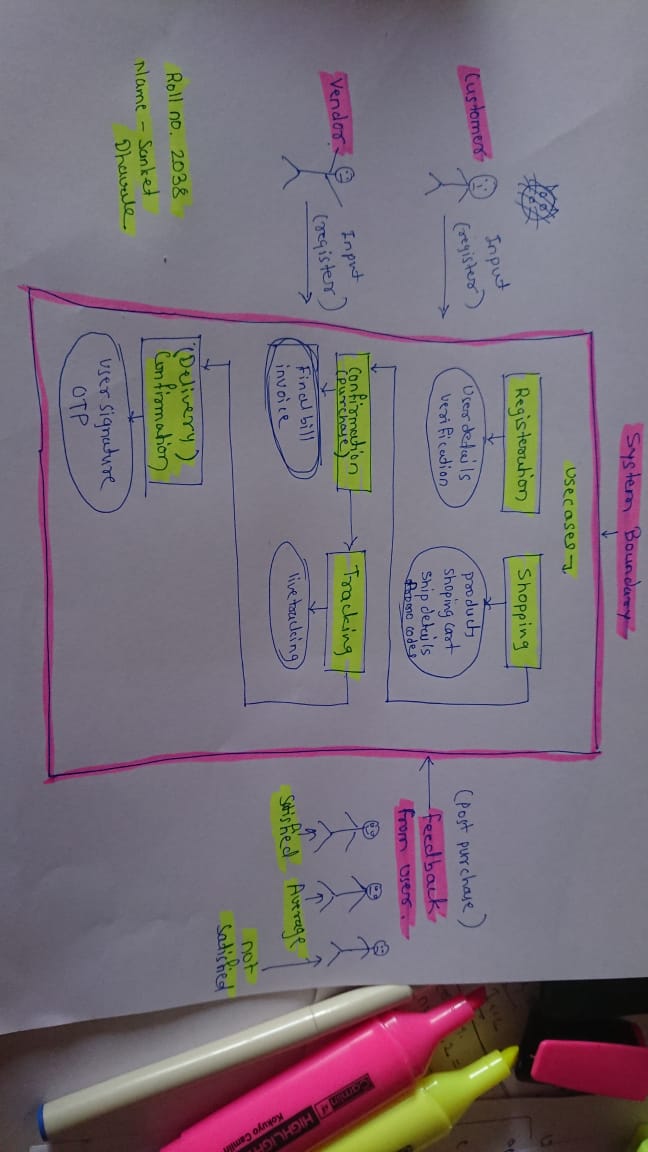 System Boundary
usecases
Customer
Input
(register)
Vendor
Input
(register)
Roll no. 2038
Name - Sanket
Dhawale
Registeration
User details
verification
Shopping
product
shoping cart
ship details
promo codes
Confirmation
(purchase)
Final bill
invoice
Tracking
livetracking
(Delivery)
Confirmation
User signature
OTP
(post purchase)
feedback
from user.
Satisfied
Average
not
satisfied
Camlin
HIGHLIGH
Kokuyo Camlin